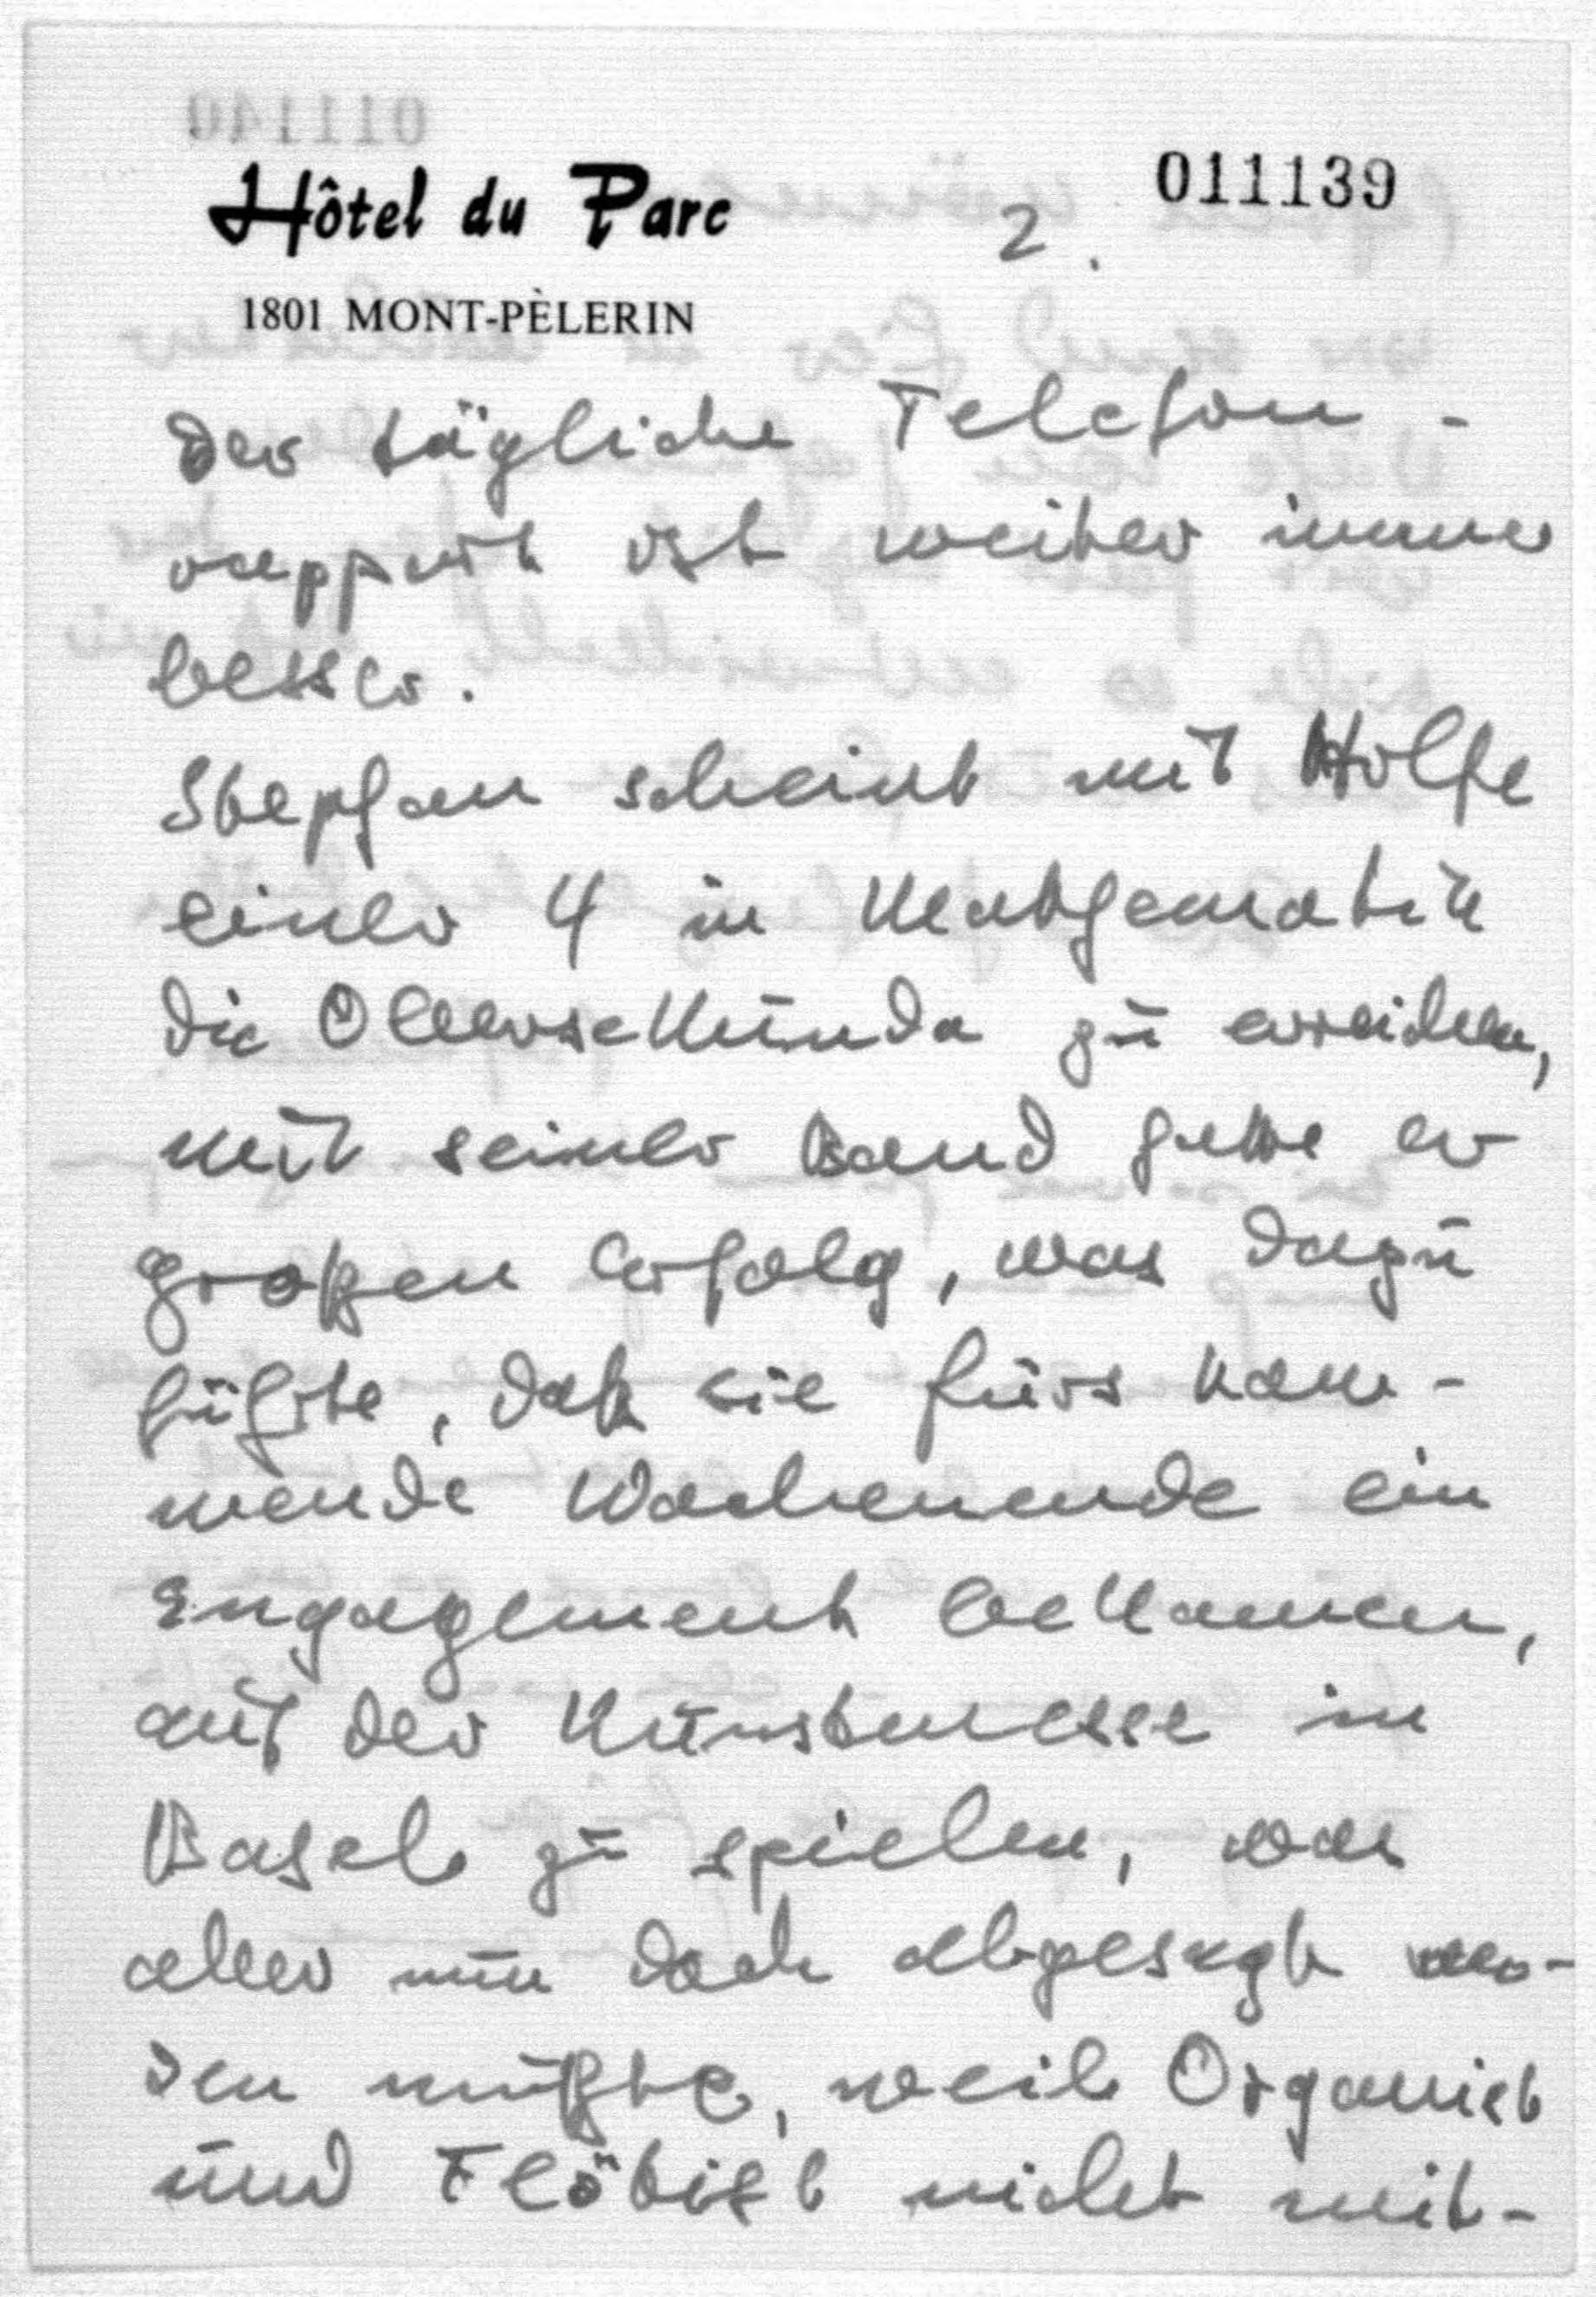 011139
Hôtel du Parc
2.
1801 MONT-PÈLERIN
Der tägliche Telefon-
rapport ist weiter immer
besser.
Stephan scheint mit Hilfe
einer 4 in Mathematik
die Obersekunda zu erreichen,
mit seiner Band hatte er
großen Erfolg, was dazu
führte, daß sie fürs kom-
mende Wochenende ein
Engagement bekamen,
auf der Kunstmesse in
Basel zu spielen, was
aber nun doch abgesagt wer-
den mußte, weil Organist
und Flötist nicht mit-